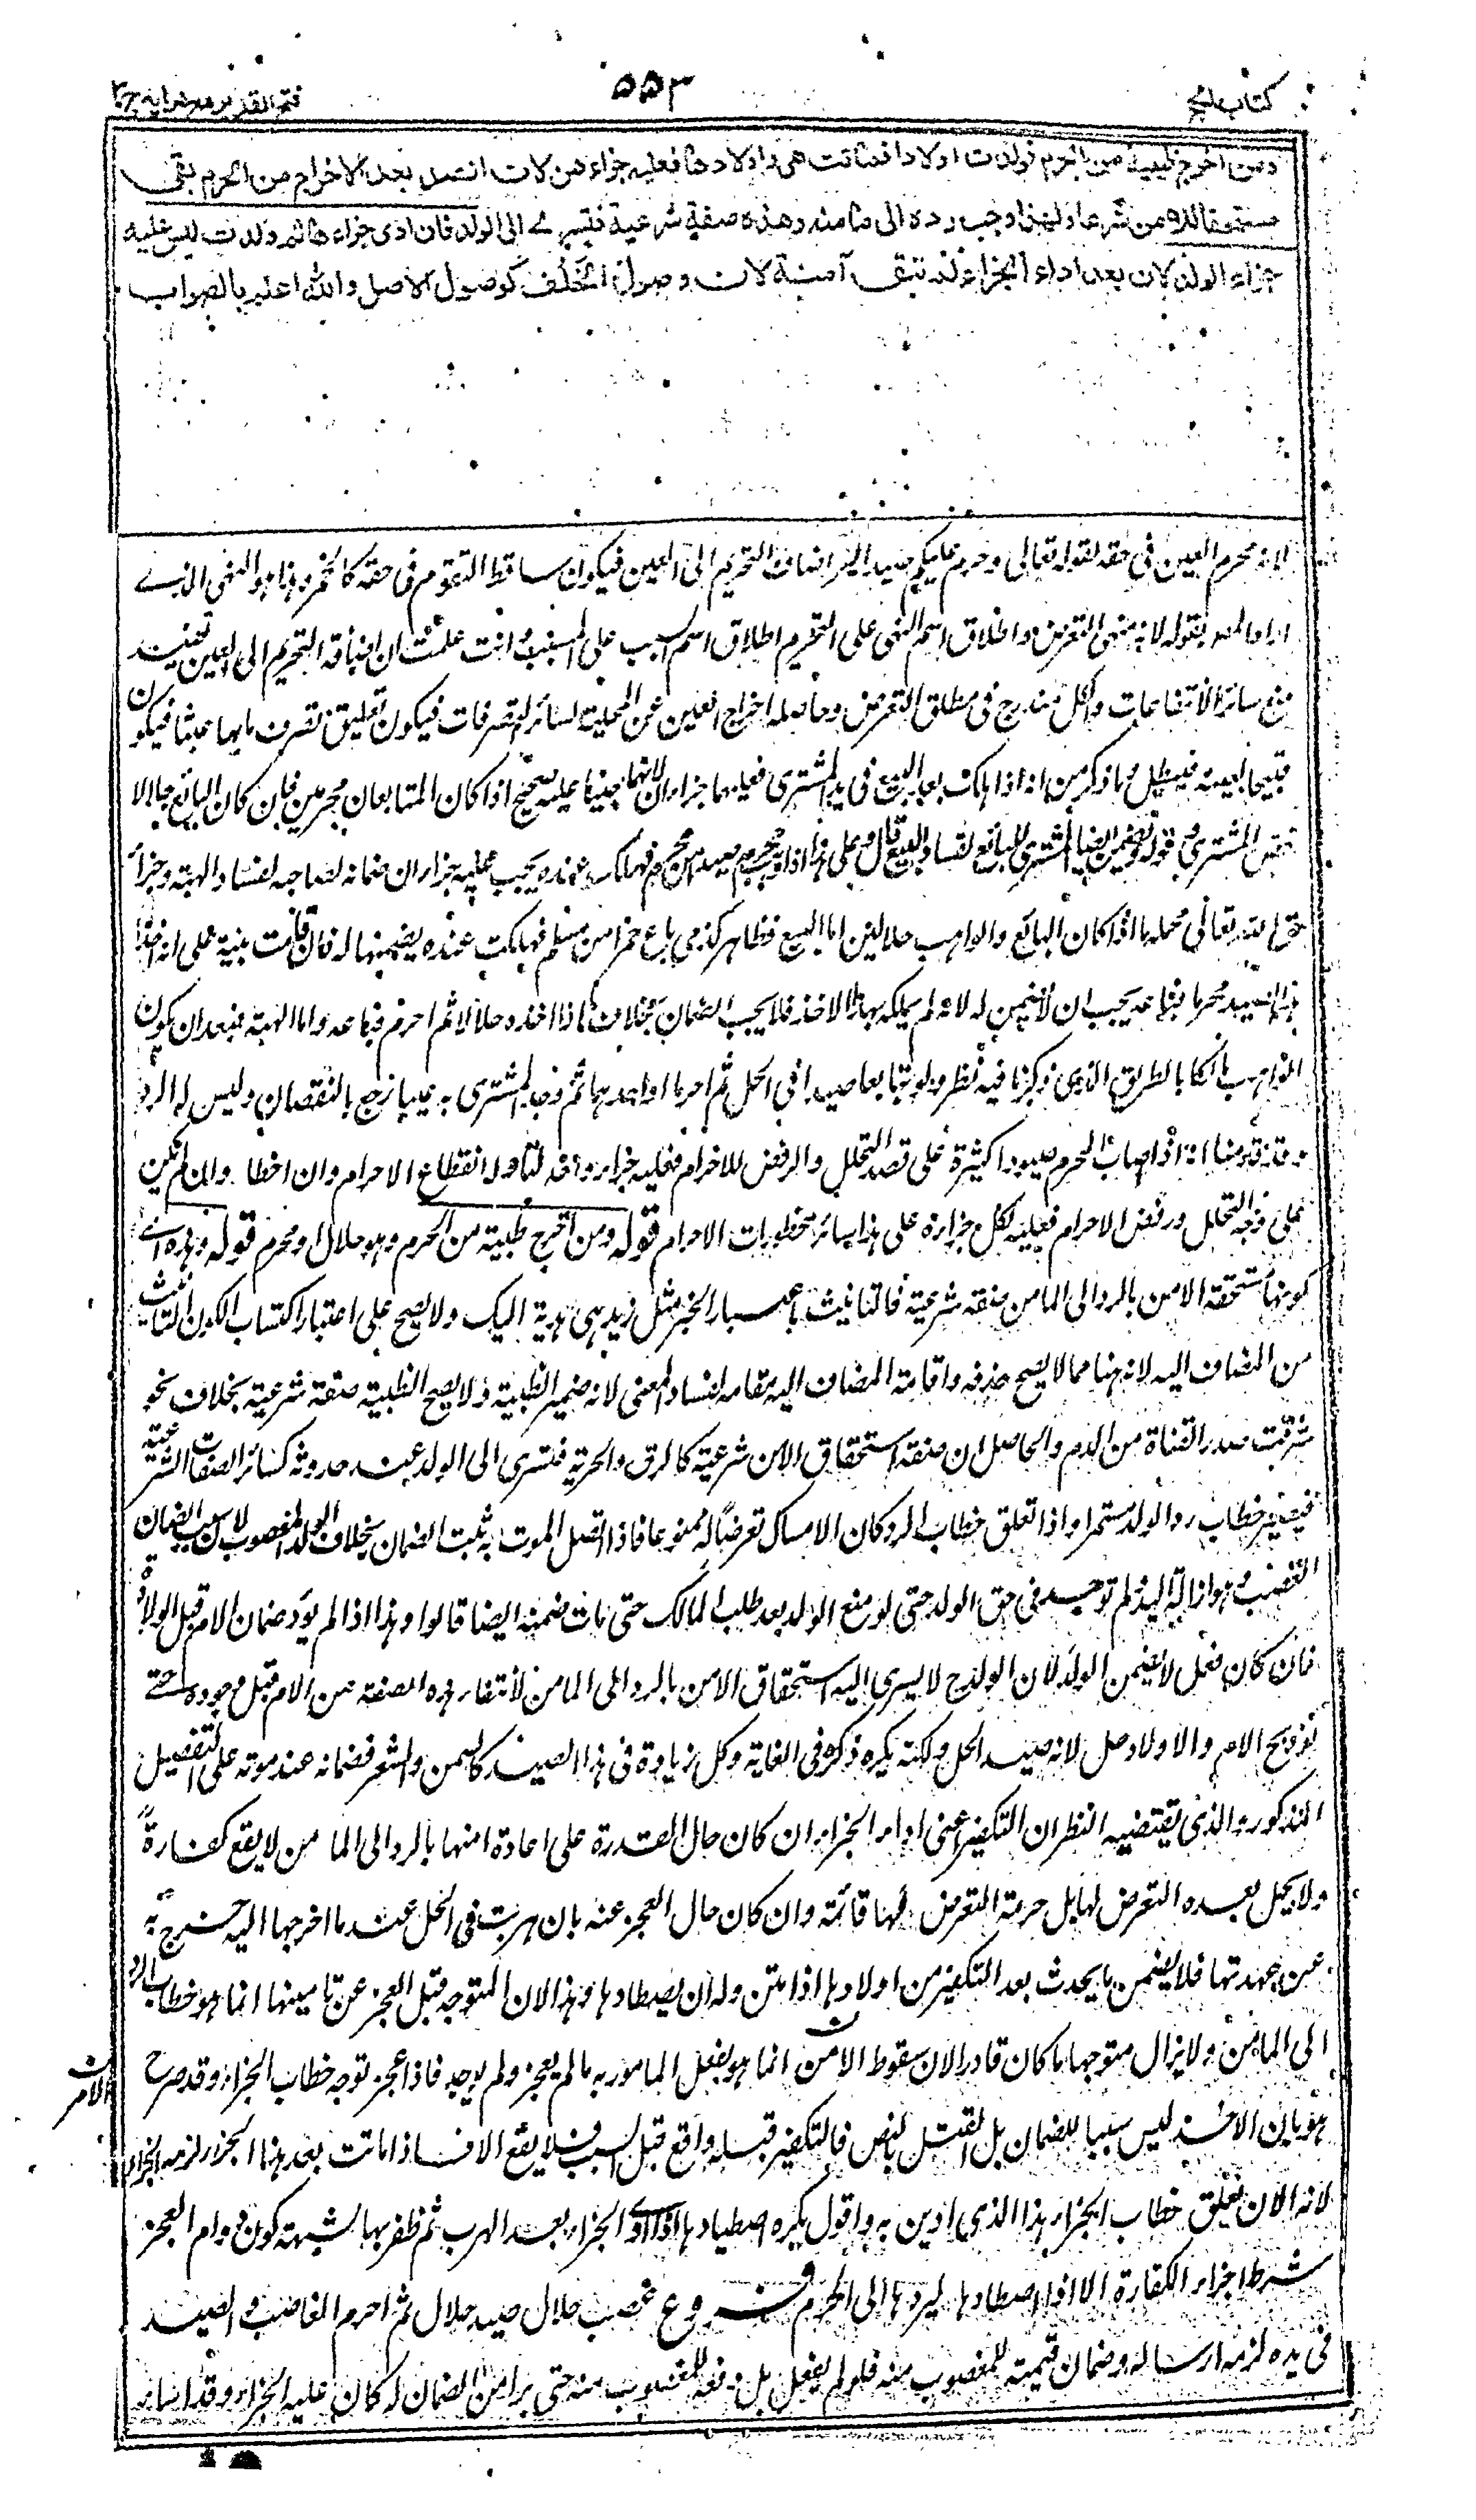 كتاب الحج
۵۵۳
فتح القدير مع هدايه ج ۲
ومن اخرج ظبية من الحرم فولدت اولادا فماتت هى واولادها فعليه جزاءهن لان الصيد بعد الاخراج من الحرم بقى
مستحقا للامن شرعا ولهذا وجب رده الى مامنه وهذه صفة شرعية فتسرى الى الولد فان ادى جزاءها ثم ولدت ليس عليه
جزاء الولد لان بعد اداء الجزاء لم تبق آمنة لان وصول الخلف كوصول الاصل والله اعلم بالصواب
لانه محرم العين فى حقه لقوله تعالى وحرم عليكم صيد البر اضاف التحريم الى العين فيكون ساقط التقوم فى حقه كالخمر وهذا هو النهى الذى
اراد المص بقوله لانه منهى التعرض واطلاق اسم النهى على التحريم اطلاق اسم السبب على المسبب وانت علمت ان اضافة التحريم الى العين تفيد
منع سائر الانتفاعات والكل مندرج فى مطلق التعرض وحاصله اخراج العين عن المحلية لسائر التصرفات فيكون تعليق تصرف ما بها عبثا فيكون
قبيحا لعينه فيبطل وما ذكر من انه اذا هلك بعد البيع فى يد المشترى فعليهما جزاءان لانهما جنيا عليه صحيح اذا كان المتبايعان محرمين فان كان البائع حلالا
المشترى وقوله ويضمن ايضا المشترى للبائع لفساد البيع قال وعلى هذا اذا وهب محرم صيدا من محرم فهلك عنده يجب عليه جزاءان ضمانه لصاحبه لفساد الهبة وجزاء
حق الله تعالى محله ما اذا كان البائع والواهب حلالين اما البيع فظاهر كذمى باع خمرا من مسلم فهلكت عنده يضمنها له فان قامت بينة على انه اخذ
هذا الصيد محرما فباعه يجب ان لا يضمن له لانه لم يملكه بهذا الاخذ فلا يجب الضمان بخلاف ما اذا اخذه حلالا ثم احرم فباعه واما الهبة فبعد ان يكون
الواهب مالكا بالطريق الذى ذكرنا فيه نظر ولو تبايعا صيدا فى الحل ثم احرما او احدهما ثم وجد المشترى به عيبا رجع بالنقصان وليس له الرد
وقد قدمنا انه اذا اصاب المحرم صيودا كثيرة على قصد التحلل والرفض للاحرام فعليه جزاء واحد لتاول انقطاع الاحرام وان اخطا وان لم يكن
على وجه التحلل ورفض الاحرام فعليه لكل جزاؤه على هذا سائر محظورات الاحرام قوله ومن اخرج ظبية من الحرم وهو حلال او محرم قوله وهذه اى
كونها مستحقة الامن بالرد الى المامن صفة شرعية فالتانيث باعتبار الخبر مثل زيد هى هدية اليك ولا يصح على اعتبار اكتساب الكون التانيث
من المضاف اليه لانه هنا مما لا يصح حذفه واقامة المضاف اليه مقامه لفساد المعنى لانه ضمير الظبية ولا يصح الظبية صفة شرعية بخلاف نحو
شرقت صدر القناة من الدم والحاصل ان صفة استحقاق الامن شرعية كالرق والحرية فتسرى الى الولد عند حدوثه كسائر الصفات الشرعية
فيصير خطاب رد الولد مستمرا واذا تعلق خطاب الرد كان الامساك تعرضا له ممنوعا فاذا اتصل الموت به ثبت الضمان بخلاف الولد المغصوب لان سبب الضمان
الغصب وهو ازالة اليد لم توجد فى حق الولد حتى لو منع الولد بعد طلب المالك حتى مات ضمنه ايضا قالوا وهذا اذا لم يؤد ضمان الام قبل الولادة
فان كان فعل لا يضمن الولد لان الولد ح لا يسرى اليه استحقاق الامن بالرد الى المامن لانتفاء هذه الصفة عن الام قبل وجوده حتى
لو ذبح الام والاولاد حل لانه صيد الحل ولكنه يكره ذكره فى الغاية وكل زيادة فى هذا الصيد كالسمن والشعر فضمانه عند موته على التفصيل
المذكور والذى يقتضيه النظر ان التكفير اعنى اداء الجزاء ان كان حال القدرة على اعادة امنها بالرد الى المامن لا يقع كفارة
ولا يحل بعده التعرض لها بل حرمة التعرض لها قائمة وان كان حال العجز عنه بان هربت فى الحل عند ما اخرجها اليه خرج به
عن عهدتها فلا يضمن ما يحدث بعد التكفير من اولادها اذا متن وله ان يصطادها وهذا لان المتوجه قبل العجز عن تامينها انما هو خطاب الرد
الى المامن ولا يزال متوجها ما كان قادرا لان سقوط الامن انما هو بفعل المامور به ما لم يعجز ولم يوجد فاذا عجز توجه خطاب الجزاء وقد صرح
هو بان الاخذ ليس سببا للضمان بل القتل بالنص فالتكفير قبله واقع قبل السبب فلا يقع الا فاذا ماتت بعد هذا الجزاء لزمه الجزاء
لانه الان تعلق خطاب الجزاء هذا الذى ادين به واقول يكره اصطيادها اذا ادى الجزاء بعد الهرب ثم ظفر بها لشبهة كون دوام العجز
شرط اجزاء الكفارة الا اذا اصطادها ليردها الى الحرم فروع غصب حلال صيد حلال ثم احرم الغاصب والصيد
فى يده لزمه ارساله وضمان قيمته للمغصوب منه فلو لم يفعل بل دفعه للمغصوب منه حتى برئ من الضمان له كان عليه الجزاء وقد اساء